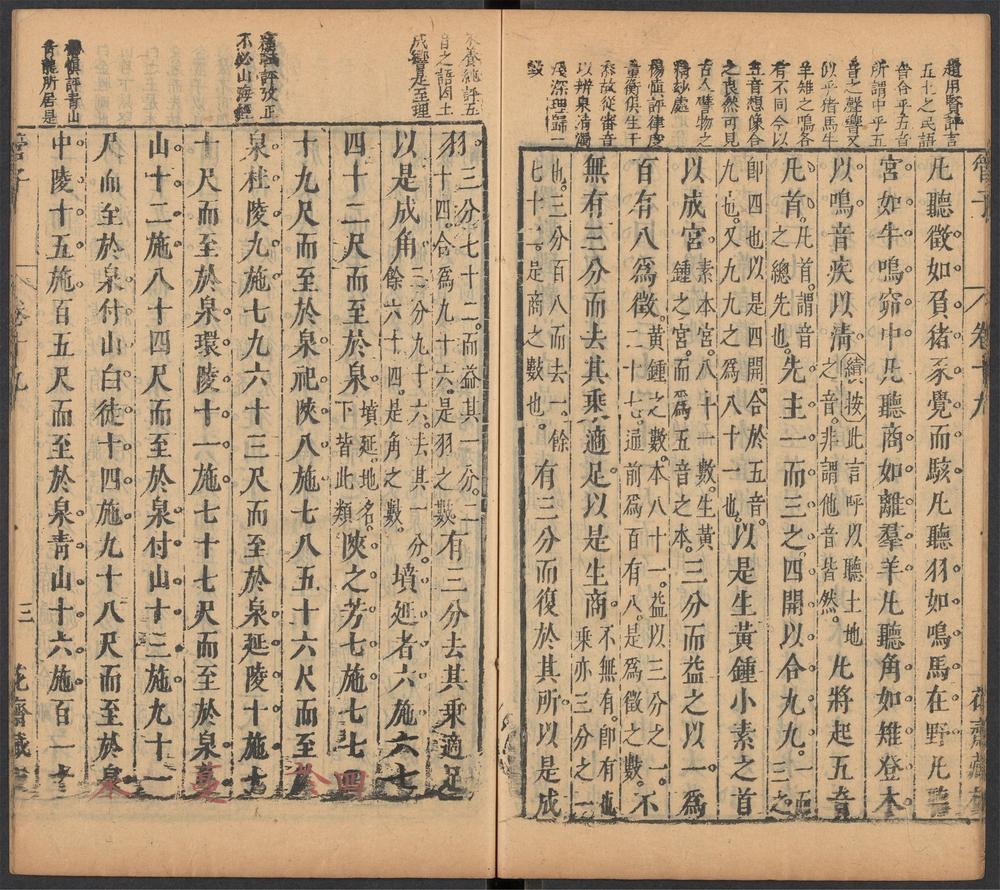 趙用賢評言
五土之民語
音合乎五音
所謂中乎五
音之聲響又
似乎豬馬牛
羊雉之鳴各
有不同今以
五音想像合
之良然可見
古人譬物之
精妙處
楊慎評律度
量衡俱生于
黍故從審音
以辨泉清濁
淺深理歸一
致
管子 卷十九 花齋藏板
凡聽徵如負豬豕覺而駭凡聽羽如鳴馬在野凡聽
宮如牛鳴窌中凡聽商如離羣羊凡聽角如雉登木
以鳴音疾以清績按此言呼以聽土地之音非謂他音皆然凡將起五音
凡首凡首謂音之總先也先主一而三之四開以合九九一而三之
即四也以是四開合於五音
九也又九九之爲八十一也以是生黃鍾小素之首
以成宮素本宮八十一數生黃鍾之宮而爲五音之本三分而益之以一爲
百有八爲徵黃鍾之數本八十一益以三分之一二十七通前爲百有八是爲徵之數不
無有三分而去其乘適足以是生商不無有即有也乘亦三分之一
也三分百八而去一餘
七十二是商之數也有三分而復於其所以是成
朱養純評五
音之語因土
成響是至理
評攷正
不必山海經
楊慎評青山
青龍所居是
羽三分七十二而益其一分二
十四合爲九十六是羽之數有三分去其乘適足
以是成角三分九十六去其一分餘六十四是角之數墳延者六施六七
四十二尺而至於泉墳延地名下皆此類陝之芳七施七七四
十九尺而至於泉祀陝八施七八五十六尺而至於
泉杜陵九施七九六十三尺而至於泉延陵十施七
十尺而至於泉環陵十一施七十七尺而至於泉蔓
山十二施八十四尺而至於泉付山十三施九十一
尺而至於泉付山白徒十四施九十八尺而至於泉
中陵十五施百五尺而至於泉青山十六施百一十
管子 卷十九 三 花齋藏板